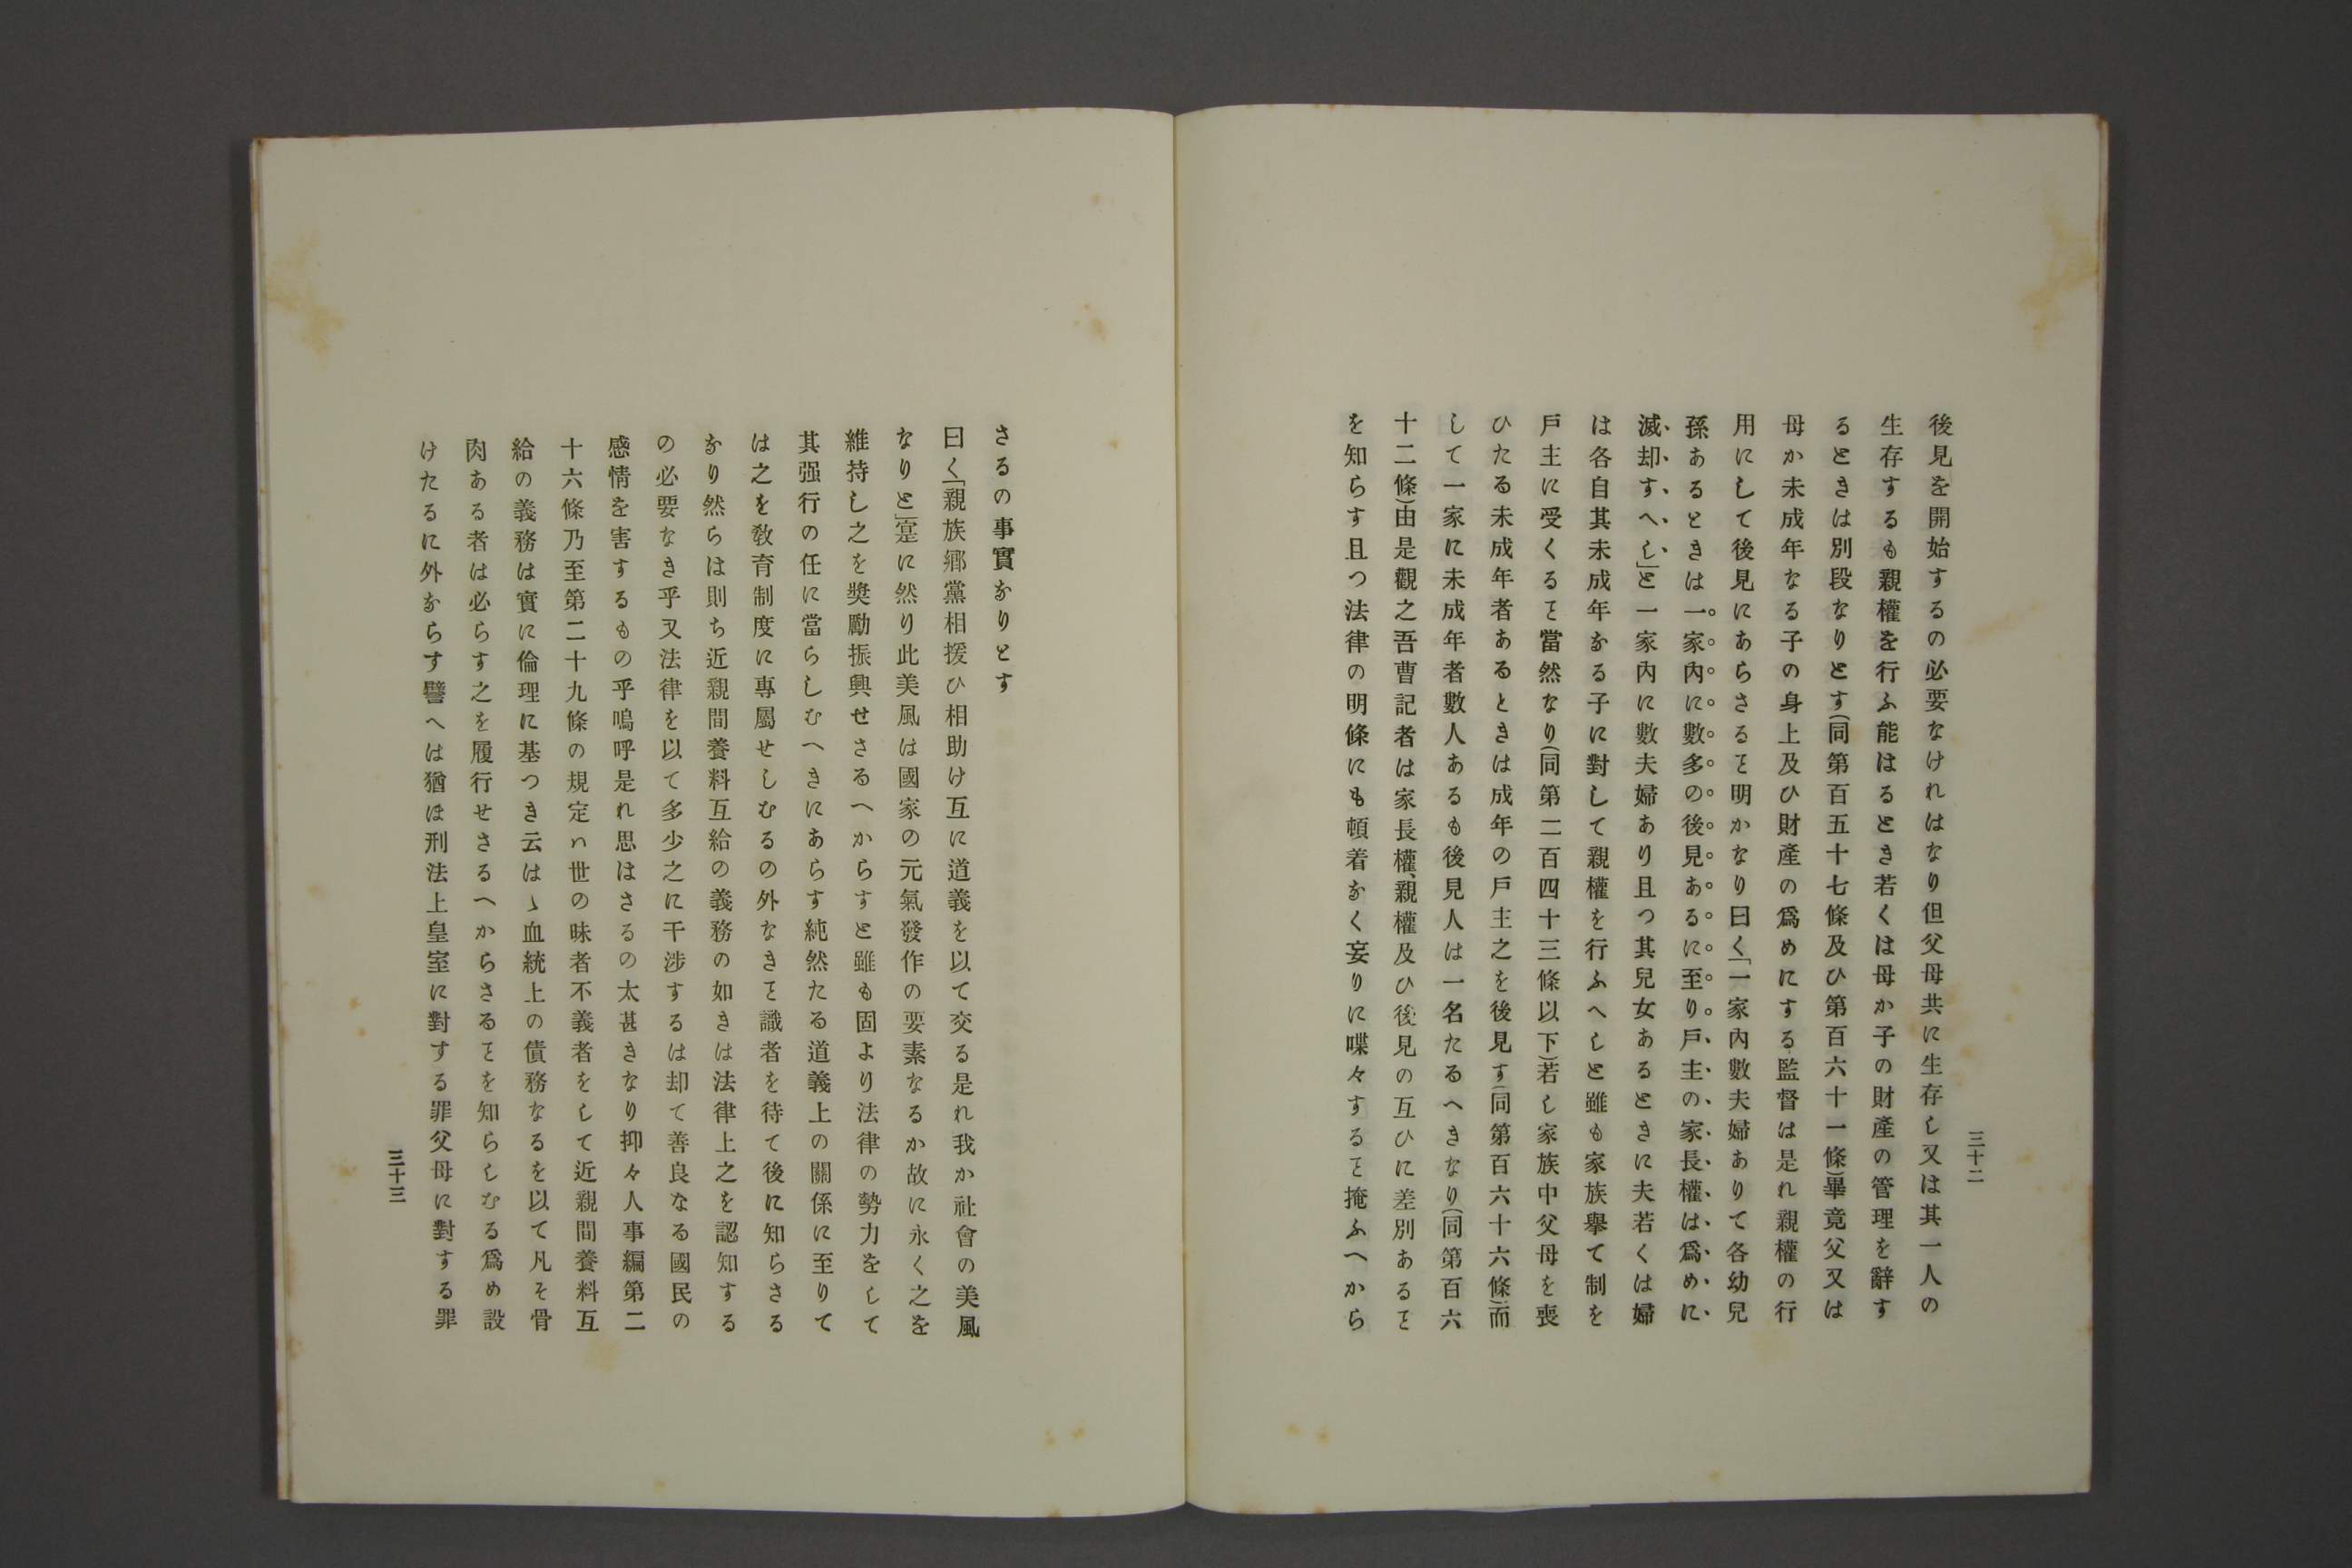 三十二
後見を開始するの必要なけれはなり但父母共に生存し又は其一人の
生存するも親權を行ふ能はるとき若くは母か子の財產の管理を辭す
るときは別段なりとす(同第百五十七條及ひ第百六十一條)畢竟父又は
母か未成年なる子の身上及ひ財產の爲めにする監督は是れ親權の行
用にして後見にあらさるヿ明かなり曰く「一家內數夫婦ありて各幼兒
孫あるときは一家內に數多の後見あるに至り戶主の家長權は爲めに
滅却すへし」と一家內に數夫婦あり且つ其兒女あるときに夫若くは婦
は各自其未成年なる子に對して親權を行ふへしと雖も家族擧て制を
戶主に受くるヿ當然なり(同第二百四十三條以下)若し家族中父母を喪
ひたる未成年者あるときは成年の戶主之を後見す(同第百六十六條)而
して一家に未成年者數人あるも後見人は一名たるへきなり(同第百六
十二條)由是觀之吾曹記者は家長權、親權及ひ後見の互ひに差別あるヿ
を知らす且つ法律の明條にも頓着なく妄りに喋々するヿ掩ふへから
さるの事實なりとす
曰く「親族鄕黨相援ひ相助け互に道義を以て交る是れ我か社會の美風
なりと」寔に然り此美風は國家の元氣發作の要素なるか故に永く之を
維持し之を奬勵振興せさるへからすと雖も固より法律の勢力をして
其强行の任に當らしむへきにあらす純然たる道義上の關係に至りて
は之を敎育制度に專屬せしむるの外なきヿ識者を待て後に知らさる
なり然らは則ち近親間養料互給の義務の如きは法律上之を認知する
の必要なき乎又法律を以て多少之に干涉するは却て善良なる國民の
感情を害するもの乎嗚呼是れ思はさるの太甚きなり抑々人事編第二
十六條乃至第二十九條の規定ハ世の昧者不義者をして近親間養料互
給の義務は實に倫理に基つき云はゝ血統上の債務なるを以て凡そ骨
肉ある者は必らす之を履行せさるへからさるヿを知らしむる爲め設
けたるに外ならす譬へは猶ほ刑法上皇室に對する罪父母に對する罪
三十三